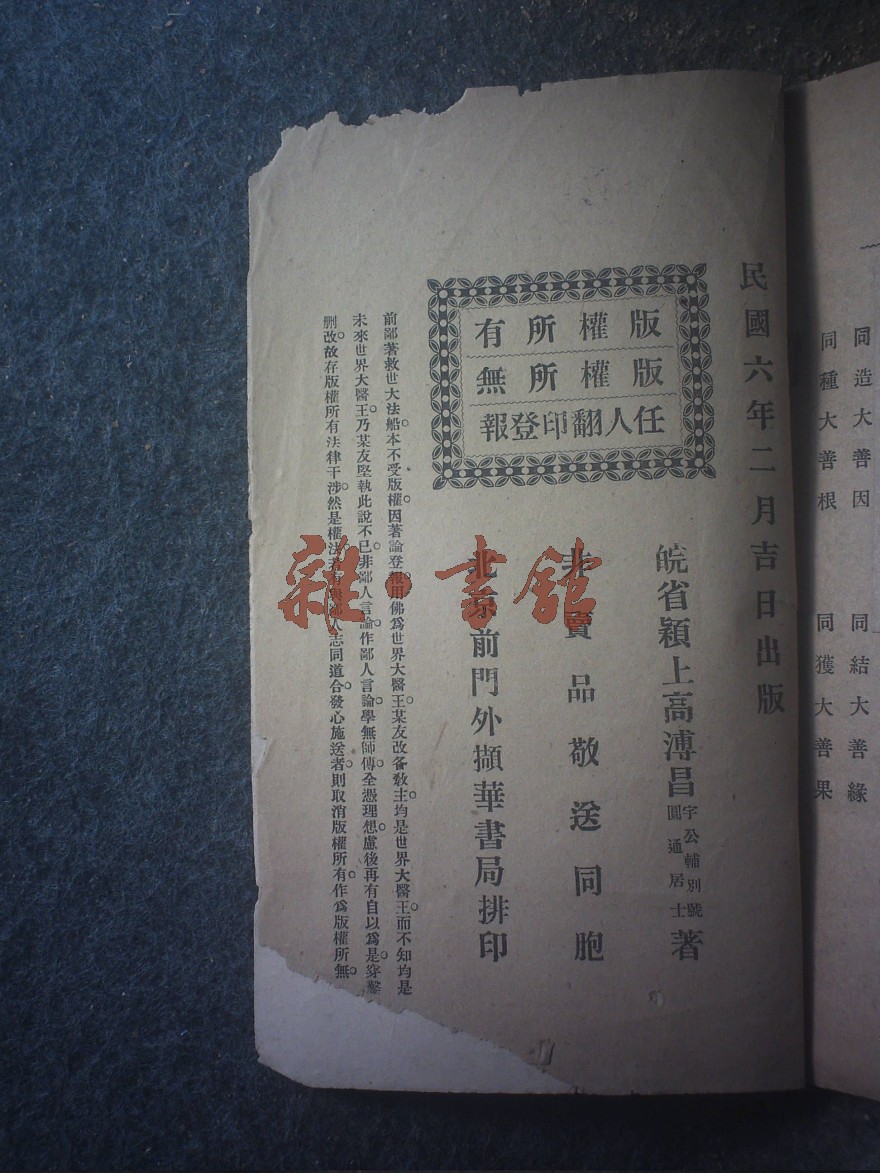 同造大善因　同結大善緣
同種大善根　同獲大善果
民國六年二月吉日出版
版權所有
版權所無
任人翻印登報
皖省潁上高溥昌字公輔別號圓通居士著
非賣品敬送同胞
北京前門外擷華書局排印
前鄙著救世大法船本不受版權因著論登報用佛爲世界大醫王某友改各敎主均是世界大醫王而不知均是
未來世界大醫王乃某友堅執此說不已非鄙人言論作鄙人言論學無師傳全憑理想慮後再有自以爲是穿鑿
刪改故存版權所有法律干涉然是權法若有與鄙人志同道合發心施送者則取消版權所有作爲版權所無
雜·書館